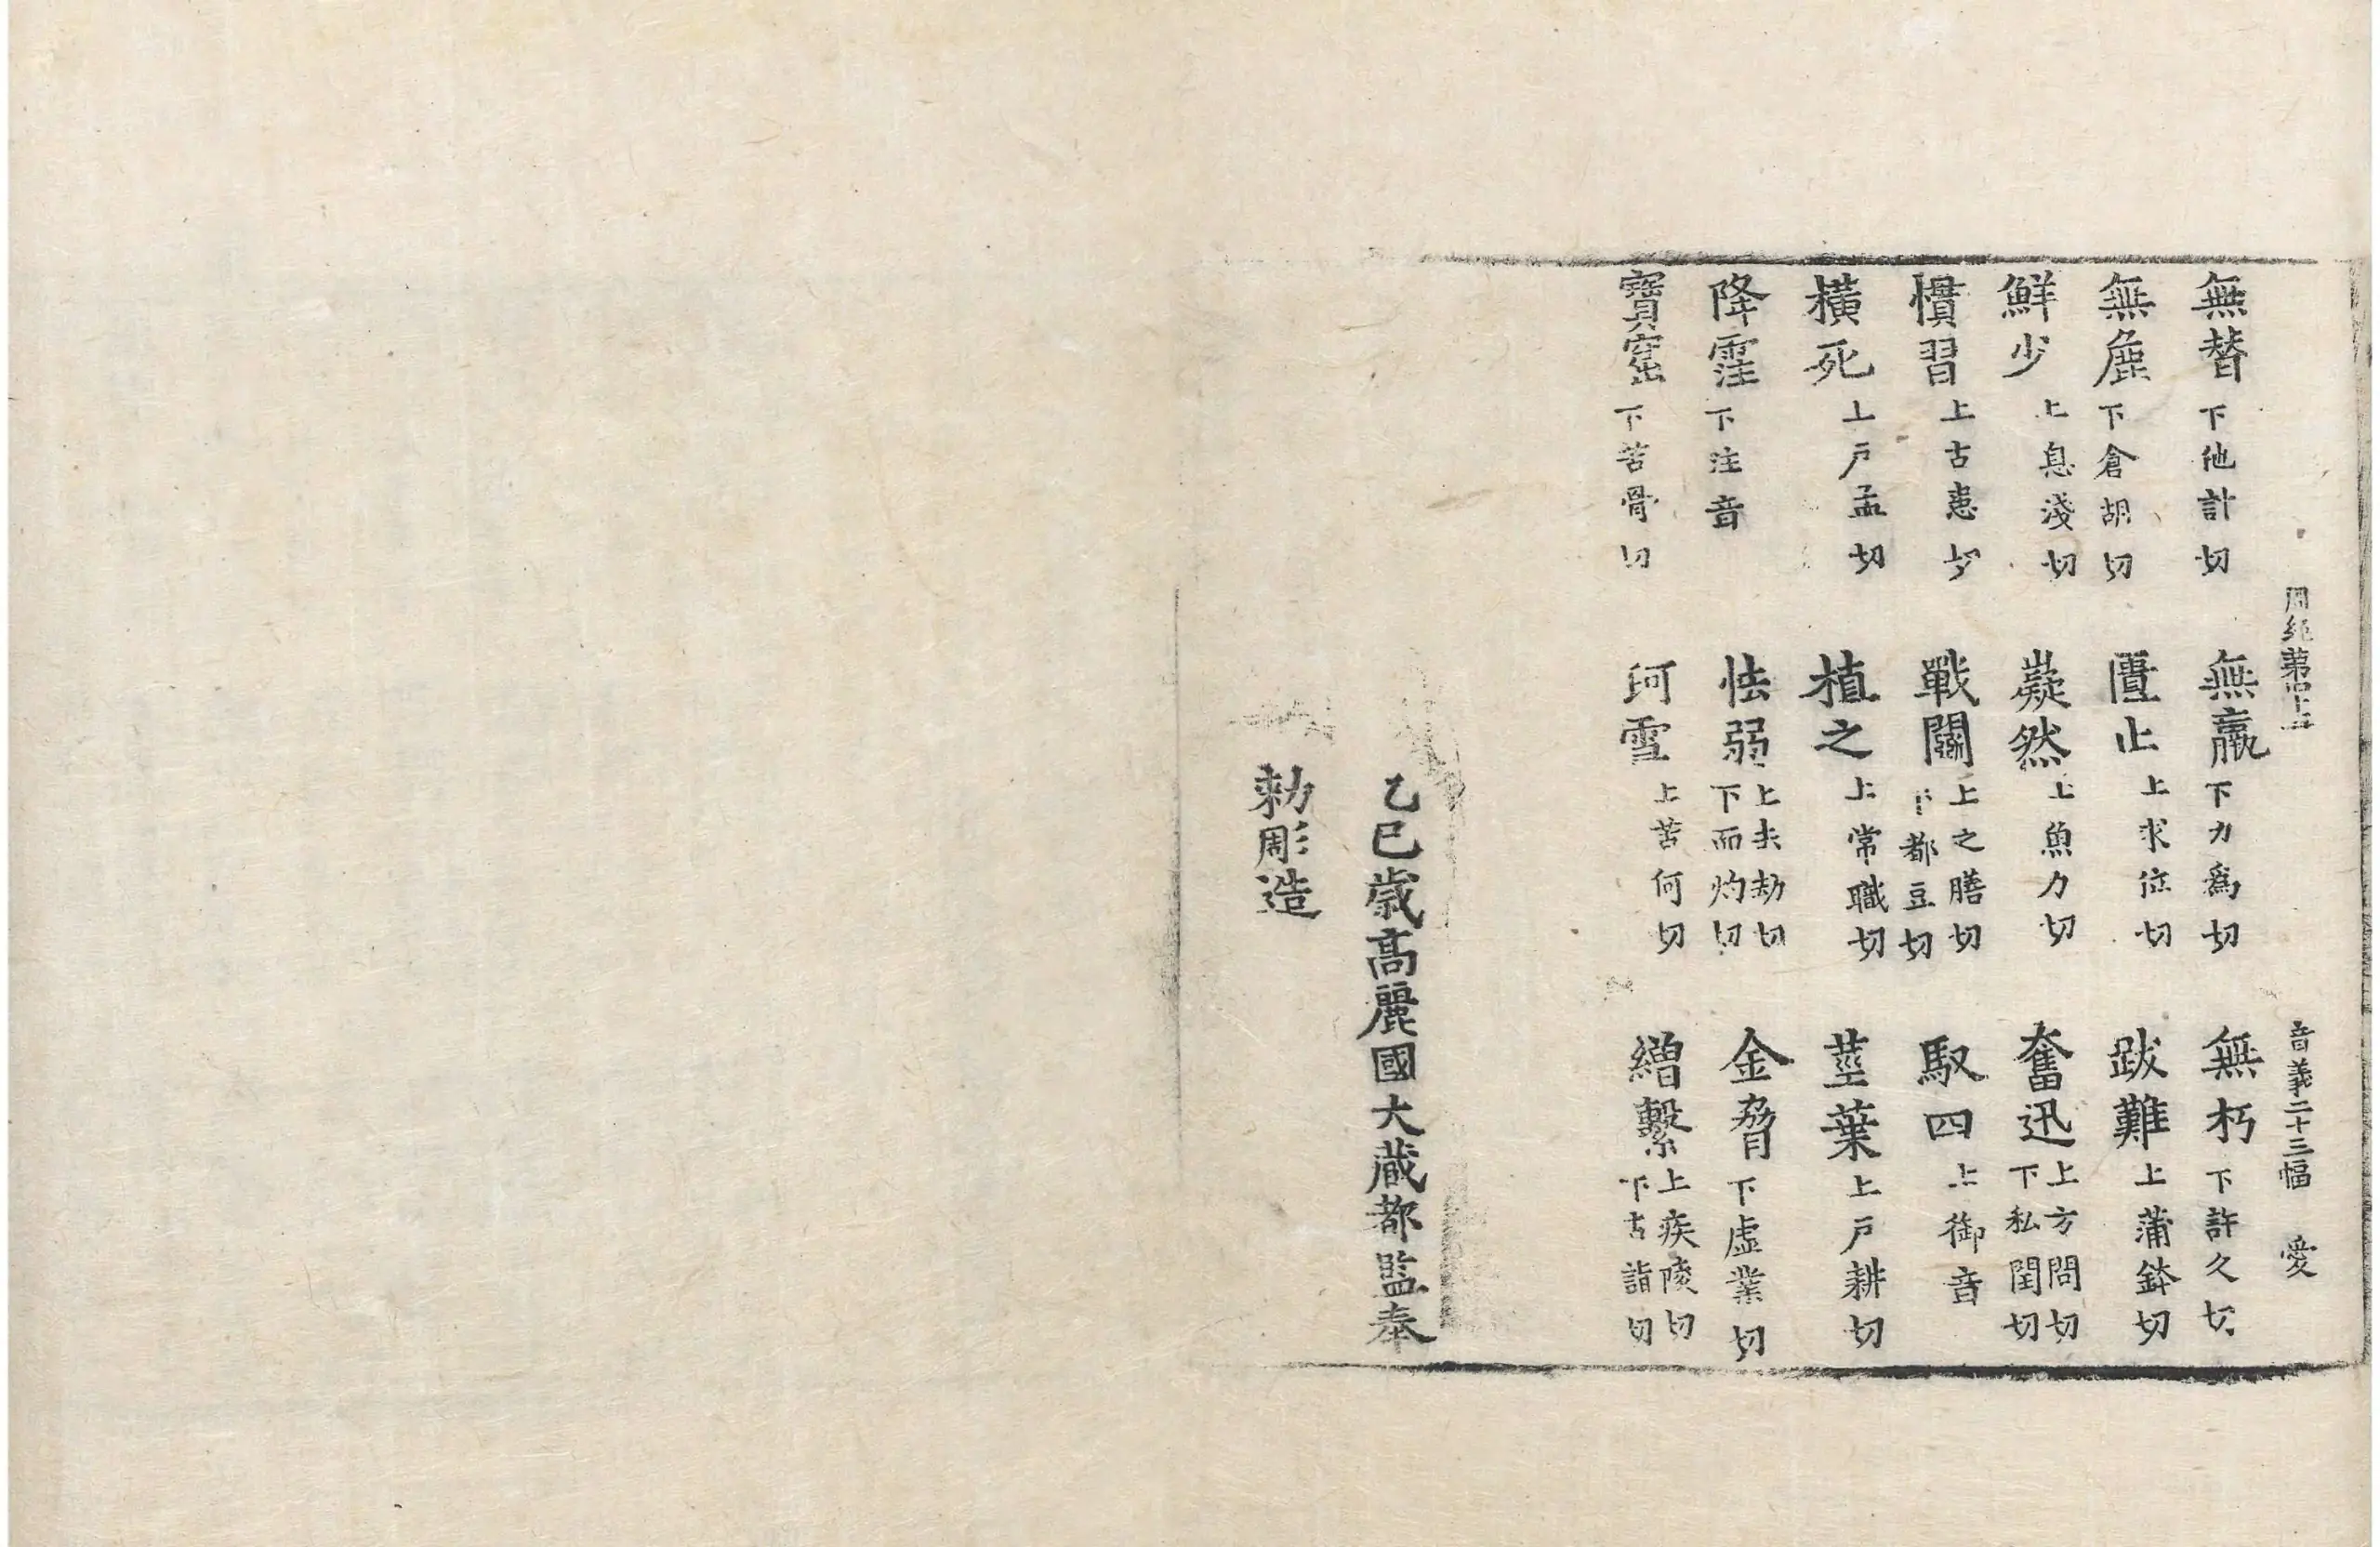 周經第四十五 音義二十三幅 愛
無替下他計切 無羸下力爲切 無朽下許久切
無麁下倉胡切 匱止上求位切 跋難上蒲鉢切
鮮少上息淺切 嶷然上魚力切 奮迅上方問切下私閏切
慣習上古患切 戰鬪上之膳切下都豆切 馭四上御音
橫死上戶孟切 植之上常職切 莖葉上戶耕切
降霔下注音 怯弱上去劫切下而灼切 金脅下虛業切
寶窟下苦骨切 珂雪上苦何切 繒繫上疾陵切下古詣切
乙巳歲高麗國大藏都監奉
勅彫造